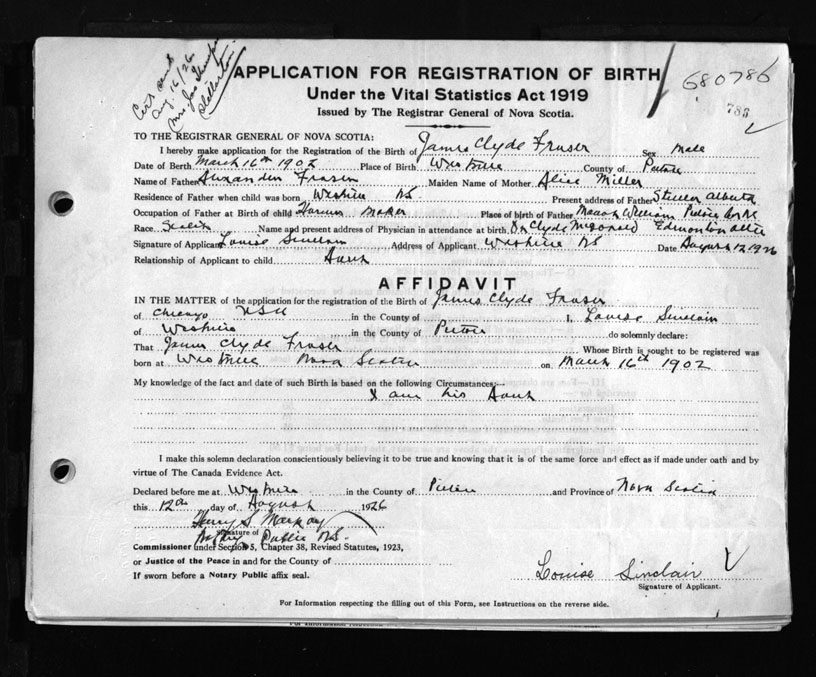 Cert sent
Aug 16/26
Mrs Jas
Stellarton
APPLICATION FOR REGISTRATION OF BIRTH
680786
Under the Vital Statistics Act 1919
786
Issued by The Registrar General of Nova Scotia.
TO THE REGISTRAR GENERAL OF NOVA SCOTIA:
I hereby make application for the Registration of the Birth of James Clyde Fraser Sex male
Date of Birth March 16th 1902 Place of Birth Westville County of Pictou
Name of Father Alexander Fraser Maiden Name of Mother Alice Miller
Residence of Father when child was born Westville NS Present address of Father Alberta
Occupation of Father at Birth of child Harness Maker Place of birth of Father William Pictou
Race Scotch Name and present address of Physician in attendance at birth. Dr Clyde McDonald Edmonton Alta
Signature of Applicant Louise Sinclair Address of Applicant Westville NS Date August 12 1926
Relationship of Applicant to child Aunt
AFFIDAVIT
IN THE MATTER of the application for the registration of the Birth of James Clyde Fraser
of Chicago USA in the County of I, Louise Sinclair
of Westville in the County of Pictou do solemnly declare:
That James Clyde Fraser Whose Birth is sought to be registered was
born at Westville Nova Scotia on March 16th 1902
My knowledge of the fact and date of such Birth is based on the following Circumstances:—
I am his Aunt
I make this solemn declaration conscientiously believing it to be true and knowing that it is of the same force and effect as if made under oath and by
virtue of The Canada Evidence Act.
Declared before me at Westville in the County of Pictou and Province of Nova Scotia
this 12th day of August 1926
Harry S
Signature of
Notary Public N.S.
Commissioner under Section 5, Chapter 38, Revised Statutes, 1923,
or Justice of the Peace in and for the County of
If sworn before a Notary Public affix seal.
Louise Sinclair
Signature of Applicant.
For Information respecting the filling out of this Form, see Instructions on the reverse side.